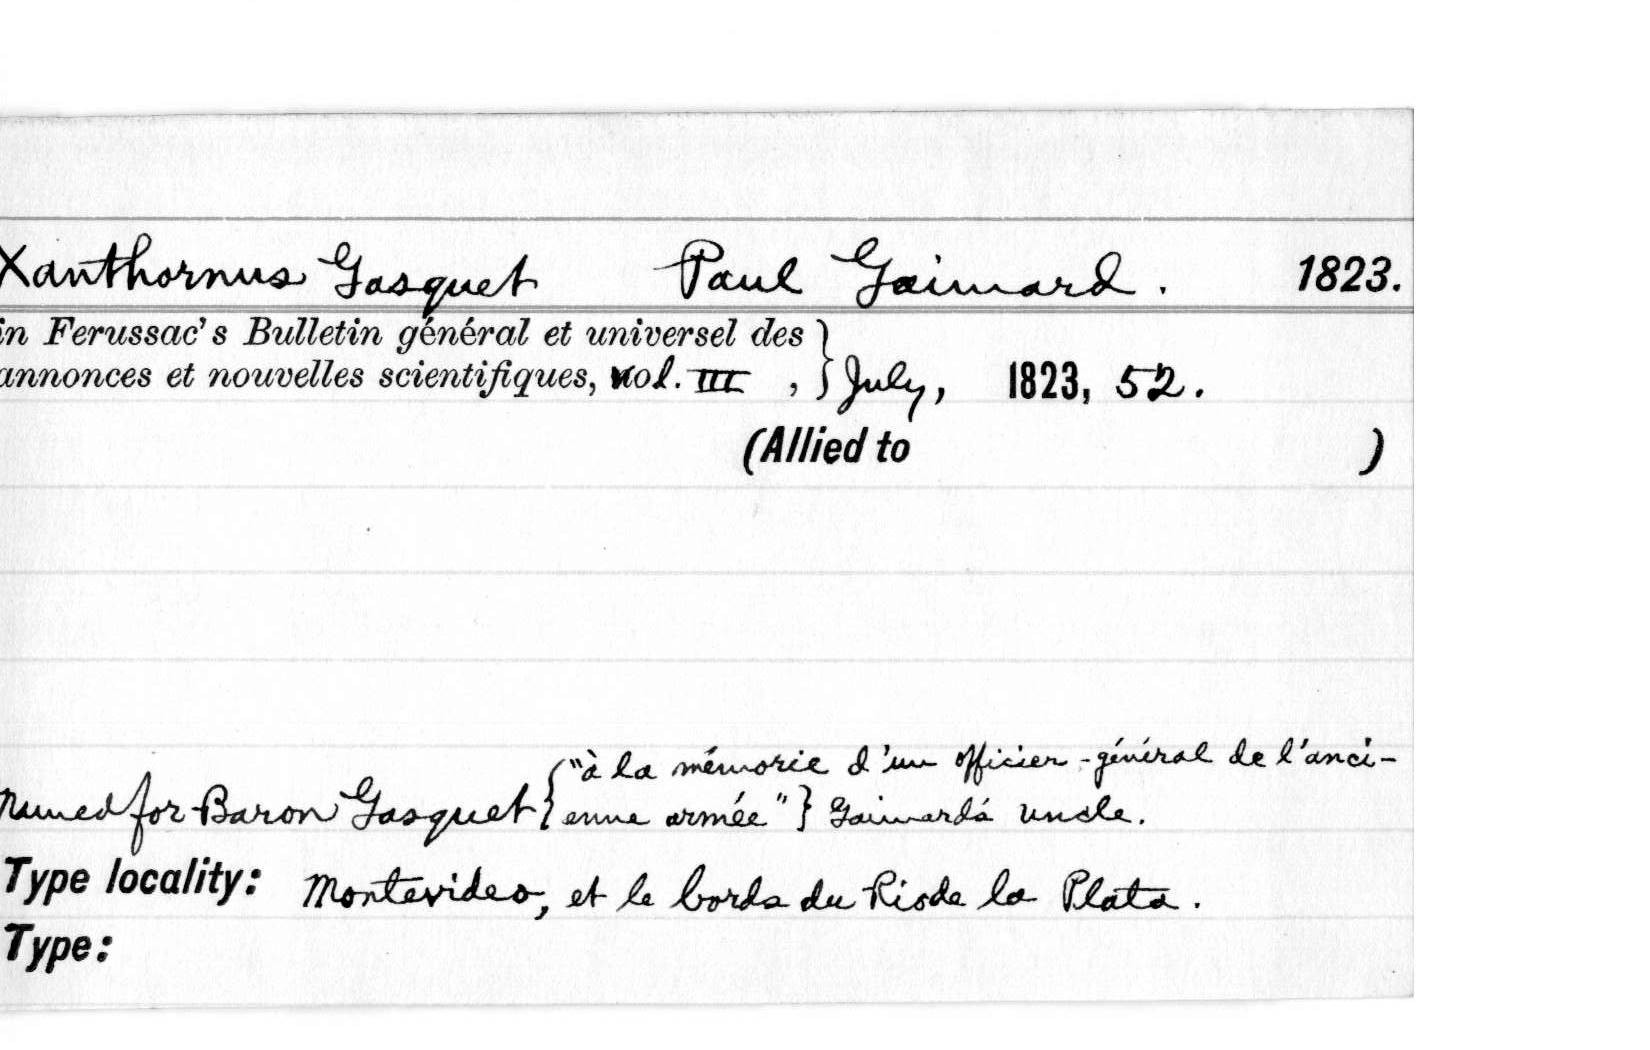 Xanthornus Gasquet Paul Gaimard. 1823.
in Ferussac's Bulletin général et universel des
annonces et nouvelles scientifiques, vol. III , } July, 1823, 52.
(Allied to )
named for Baron Gasquet { "à la mémorie d'un officier-général de l'anci-
enne armée" } Gaimard's uncle.
Type locality: Montevideo, et le bords du Rio de la Plata.
Type: